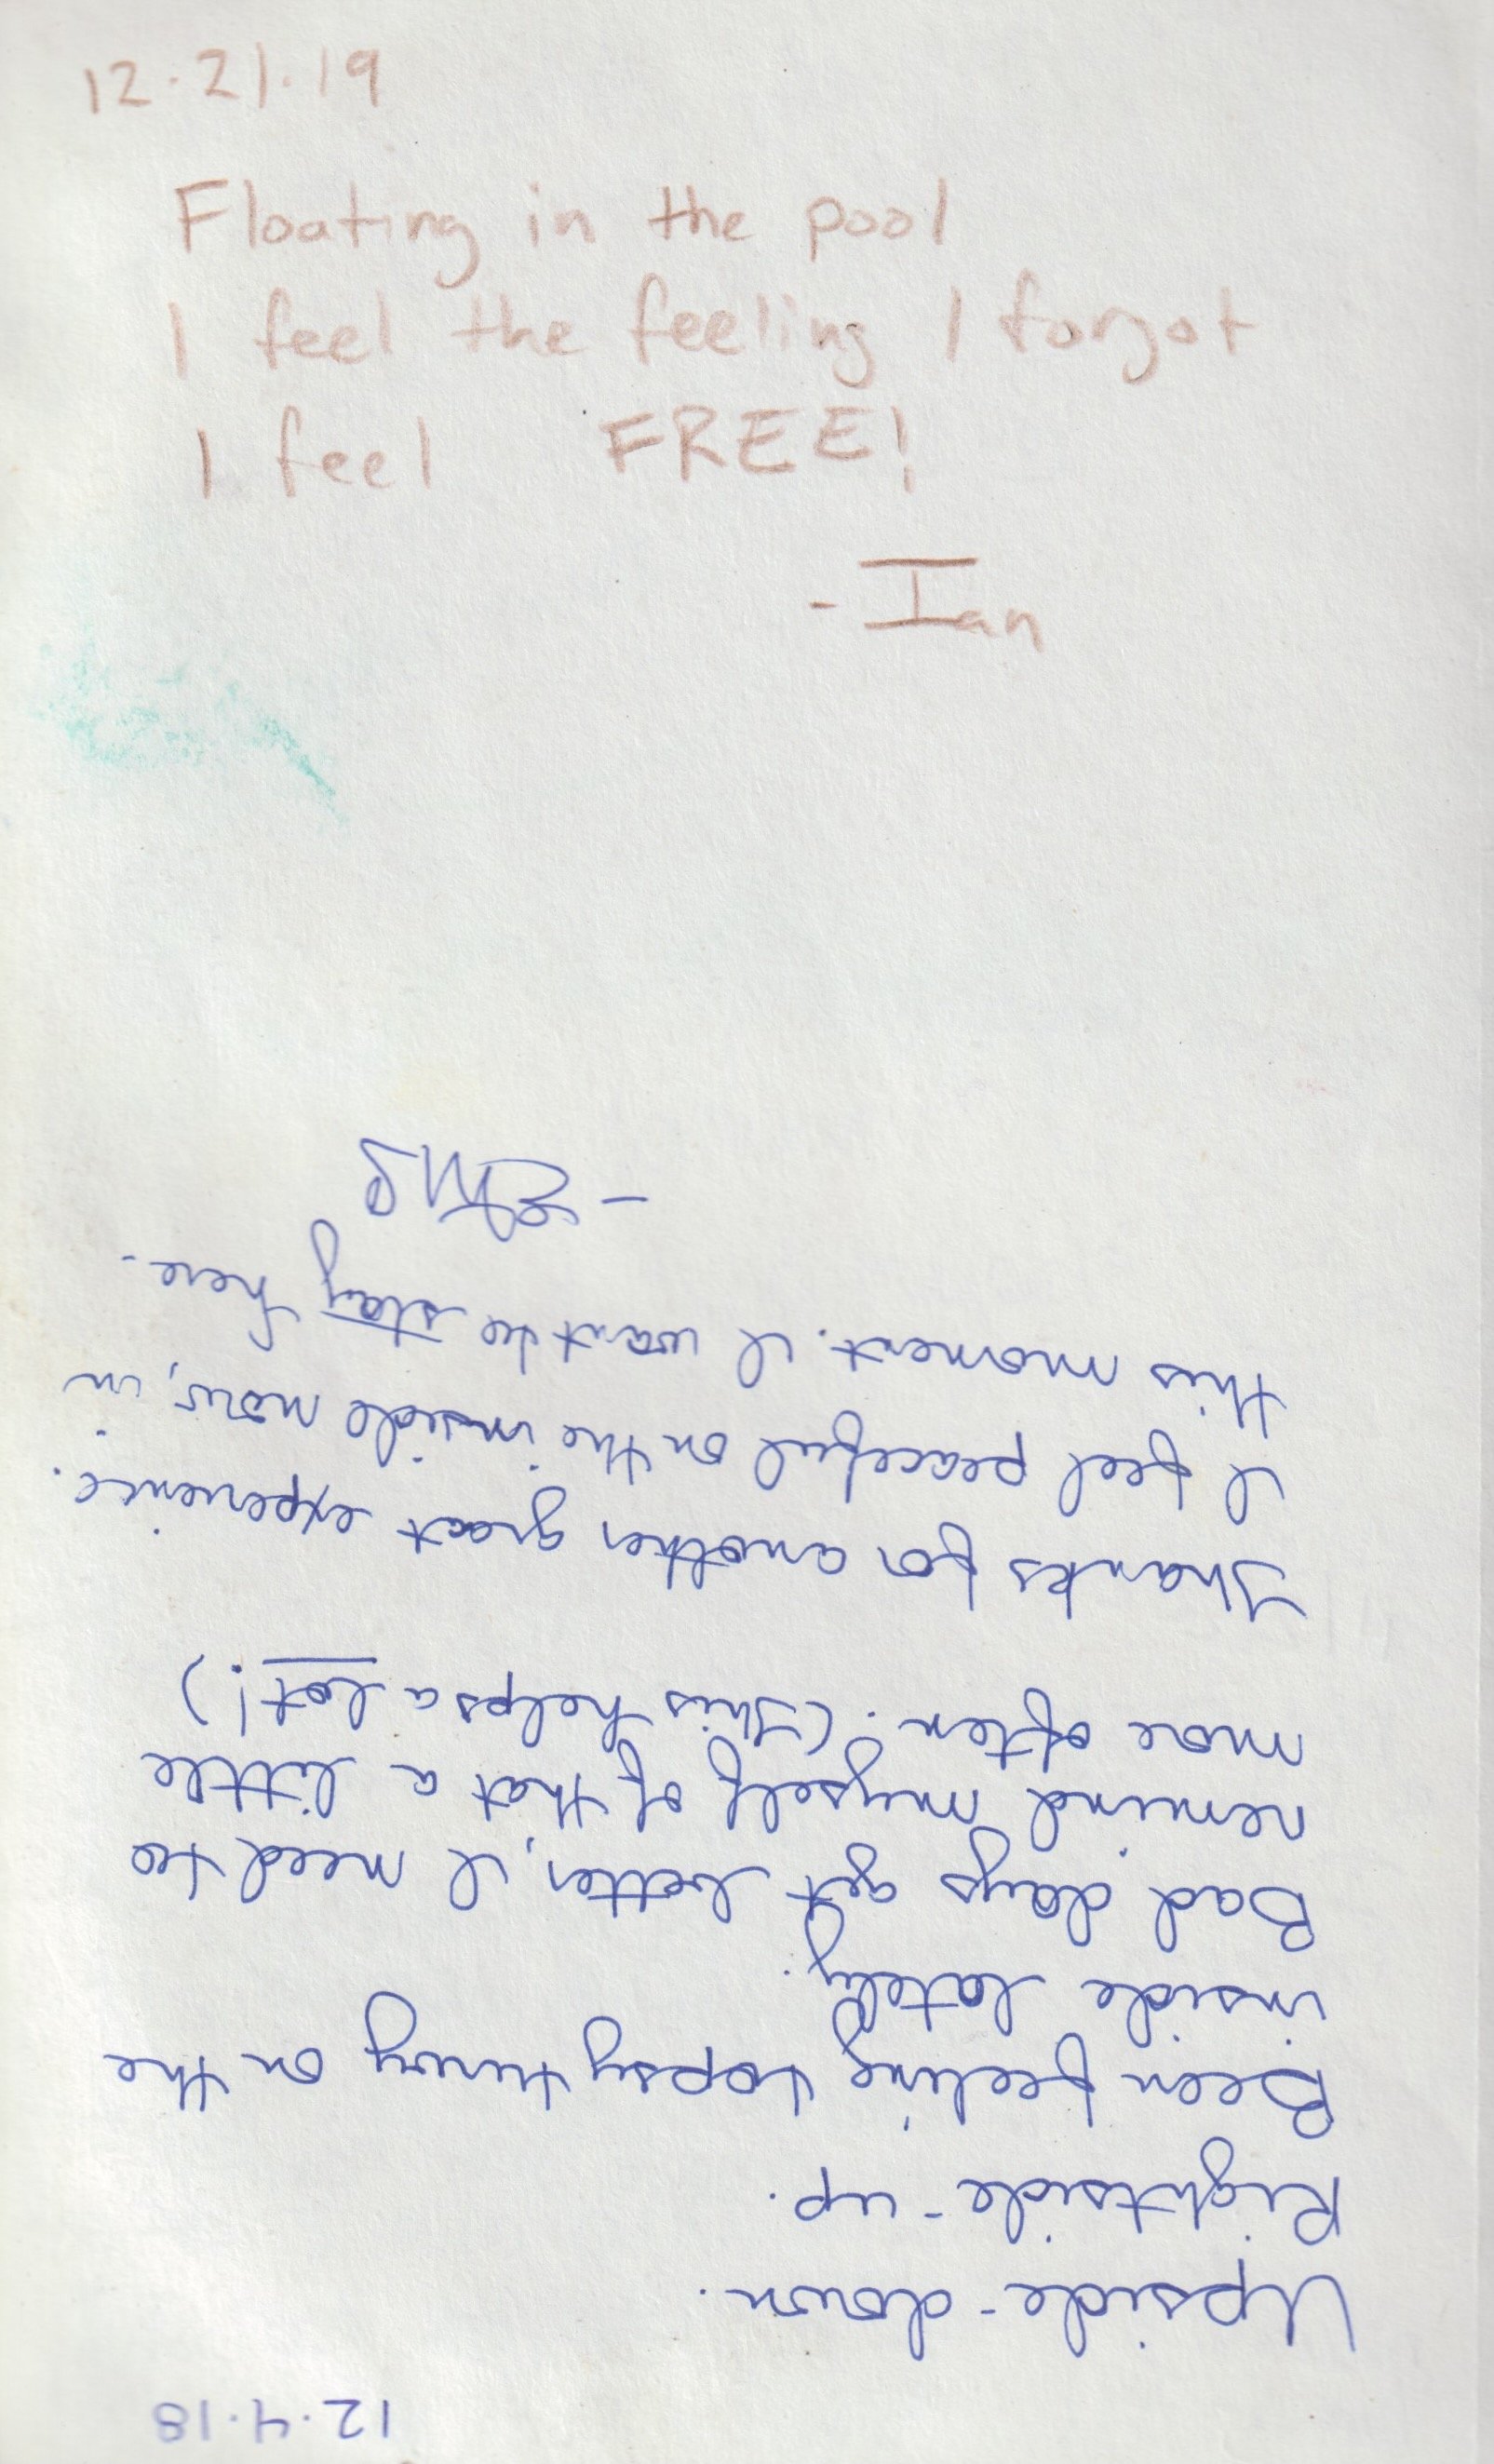 12.21.19
Floating in the pool
I feel the feeling I forgot
I feel FREE!
- Ian
12.4.18
Upside-down.
Rightside-up.
Been feeling topsy turvy on the
inside lately.
Bad days get better, I need to
remind myself of that a little
more often. (This helps a lot!)
Thanks for another great experience.
I feel peaceful on the inside now, in
this moment. I want to stay here.